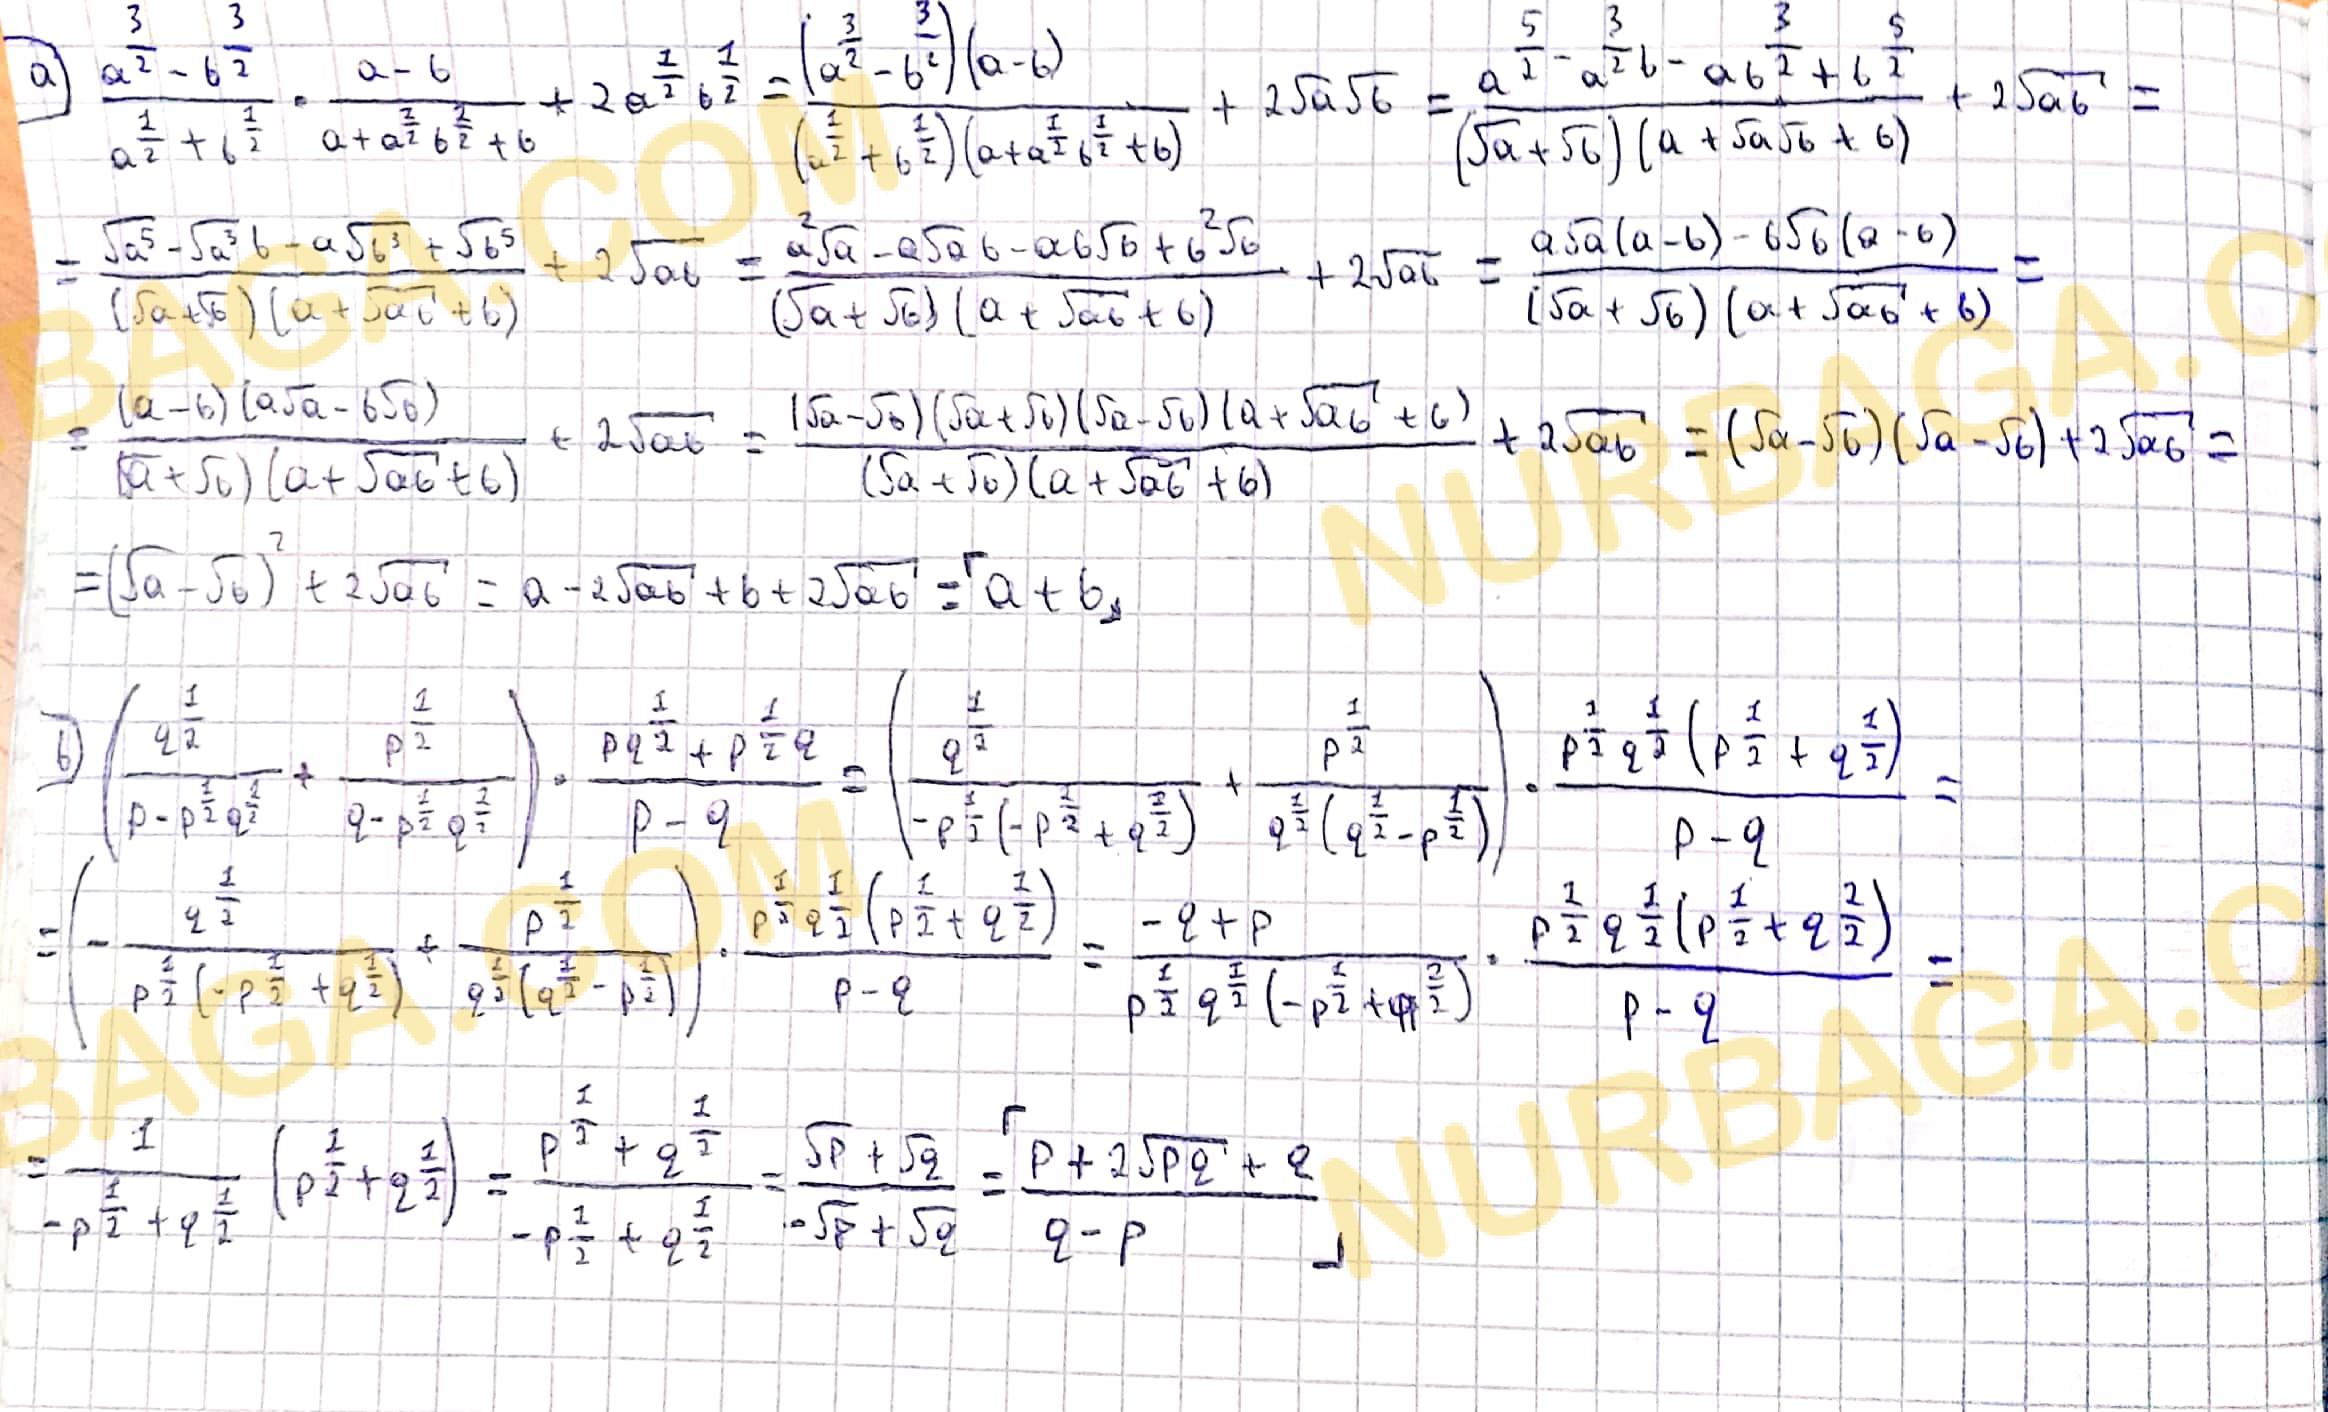 a) \frac{a^{\frac{3}{2}} - b^{\frac{3}{2}}}{a^{\frac{1}{2}} + b^{\frac{1}{2}}} \cdot \frac{a-b}{a + a^{\frac{1}{2}} b^{\frac{1}{2}} + b} + 2a^{\frac{1}{2}} b^{\frac{1}{2}} = \frac{(a^{\frac{3}{2}} - b^{\frac{3}{2}})(a-b)}{(a^{\frac{1}{2}} + b^{\frac{1}{2}})(a + a^{\frac{1}{2}} b^{\frac{1}{2}} + b)} + 2\sqrt{a}\sqrt{b} = \frac{a^{\frac{5}{2}} - a^{\frac{3}{2}} b - ab^{\frac{3}{2}} + b^{\frac{5}{2}}}{(\sqrt{a} + \sqrt{b})(a + \sqrt{a}\sqrt{b} + b)} + 2\sqrt{ab} =
= \frac{\sqrt{a^5} - \sqrt{a^3} b - a\sqrt{b^3} + \sqrt{b^5}}{(\sqrt{a} + \sqrt{b})(a + \sqrt{ab} + b)} + 2\sqrt{ab} = \frac{a^2\sqrt{a} - a\sqrt{a} b - ab\sqrt{b} + b^2\sqrt{b}}{(\sqrt{a} + \sqrt{b})(a + \sqrt{ab} + b)} + 2\sqrt{ab} = \frac{a\sqrt{a}(a-b) - b\sqrt{b}(a-b)}{(\sqrt{a} + \sqrt{b})(a + \sqrt{ab} + b)} =
= \frac{(a-b)(a\sqrt{a} - b\sqrt{b})}{(\sqrt{a} + \sqrt{b})(a + \sqrt{ab} + b)} + 2\sqrt{ab} = \frac{(\sqrt{a} - \sqrt{b})(\sqrt{a} + \sqrt{b})(\sqrt{a} - \sqrt{b})(a + \sqrt{ab} + b)}{(\sqrt{a} + \sqrt{b})(a + \sqrt{ab} + b)} + 2\sqrt{ab} = (\sqrt{a} - \sqrt{b})(\sqrt{a} - \sqrt{b}) + 2\sqrt{ab} =
= (\sqrt{a} - \sqrt{b})^2 + 2\sqrt{ab} = a - 2\sqrt{ab} + b + 2\sqrt{ab} = a + b
b) (\frac{q^{\frac{1}{2}}}{p - p^{\frac{1}{2}} q^{\frac{1}{2}}} + \frac{p^{\frac{1}{2}}}{q - p^{\frac{1}{2}} q^{\frac{1}{2}}}) \cdot \frac{pq^{\frac{1}{2}} + p^{\frac{1}{2}} q}{p - q} = (\frac{q^{\frac{1}{2}}}{-p^{\frac{1}{2}}(-p^{\frac{1}{2}} + q^{\frac{1}{2}})} + \frac{p^{\frac{1}{2}}}{q^{\frac{1}{2}}(q^{\frac{1}{2}} - p^{\frac{1}{2}})}) \cdot \frac{p^{\frac{1}{2}} q^{\frac{1}{2}}(p^{\frac{1}{2}} + q^{\frac{1}{2}})}{p - q} =
= (-\frac{q^{\frac{1}{2}}}{p^{\frac{1}{2}}(-p^{\frac{1}{2}} + q^{\frac{1}{2}})} + \frac{p^{\frac{1}{2}}}{q^{\frac{1}{2}}(q^{\frac{1}{2}} - p^{\frac{1}{2}})}) \cdot \frac{p^{\frac{1}{2}} q^{\frac{1}{2}}(p^{\frac{1}{2}} + q^{\frac{1}{2}})}{p - q} = \frac{-q + p}{p^{\frac{1}{2}} q^{\frac{1}{2}}(-p^{\frac{1}{2}} + q^{\frac{1}{2}})} \cdot \frac{p^{\frac{1}{2}} q^{\frac{1}{2}}(p^{\frac{1}{2}} + q^{\frac{1}{2}})}{p - q} =
= \frac{1}{-p^{\frac{1}{2}} + q^{\frac{1}{2}}} (p^{\frac{1}{2}} + q^{\frac{1}{2}}) = \frac{p^{\frac{1}{2}} + q^{\frac{1}{2}}}{-p^{\frac{1}{2}} + q^{\frac{1}{2}}} = \frac{\sqrt{p} + \sqrt{q}}{-\sqrt{p} + \sqrt{q}} = \frac{p + 2\sqrt{pq} + q}{q - p}
BAGA.COM
NURBAGA.C
BAGA.COM
NURBAGA.C